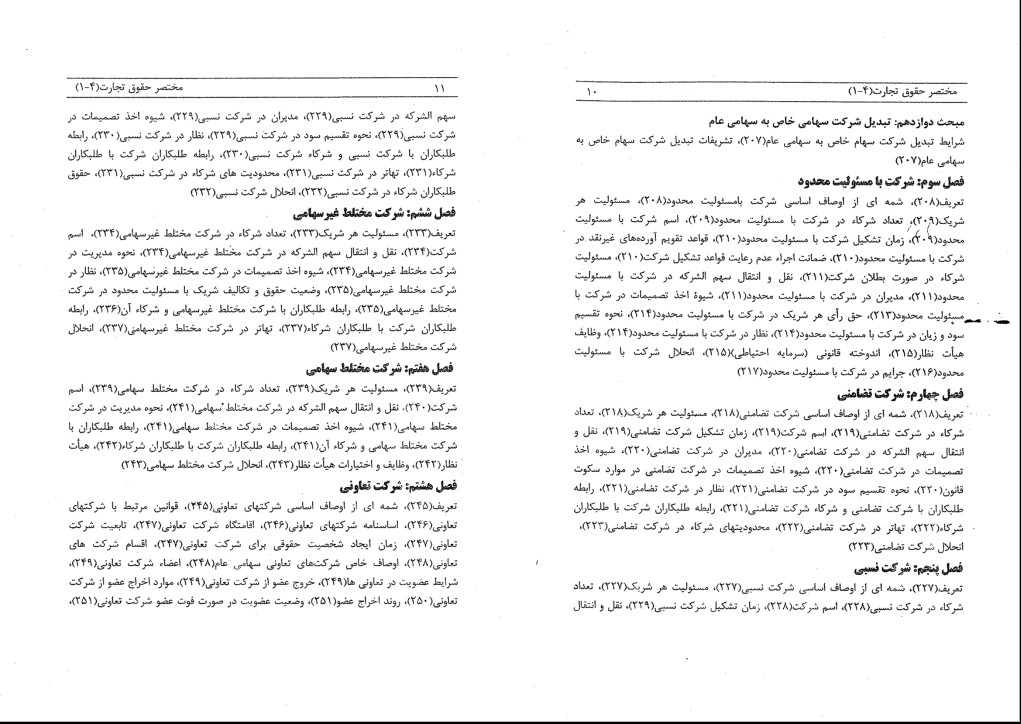 مختصر حقوق تجارت(۴-۱)
۱۰
مبحث دوازدهم: تبدیل شرکت سهامی خاص به سهامی عام
شرایط تبدیل شرکت سهام خاص به سهامی عام(۲۰۷)، تشریفات تبدیل شرکت سهام خاص به
سهامی عام(۲۰۷)
فصل سوم: شرکت با مسئولیت محدود
تعریف(۲۰۸)، شمه ای از اوصاف اساسی شرکت بامسئولیت محدود(۲۰۸)، مسئولیت هر
شریک(۲۰۹)، تعداد شرکاء در شرکت با مسئولیت محدود(۲۰۹)، اسم شرکت با مسئولیت
محدود(۲۰۹)، زمان تشکیل شرکت با مسئولیت محدود(۲۱۰)، قواعد تقویم آورده‌های غیرنقد در
شرکت با مسئولیت محدود(۲۱۰)، ضمانت اجراء عدم رعایت قواعد تشکیل شرکت(۲۱۰)، مسئولیت
شرکاء در صورت بطلان شرکت(۲۱۱)، نقل و انتقال سهم الشرکه در شرکت با مسئولیت
محدود(۲۱۱)، مدیران در شرکت با مسئولیت محدود(۲۱۱)، شیوۀ اخذ تصمیمات در شرکت با
مسئولیت محدود(۲۱۳)، حق رأی هر شریک در شرکت با مسئولیت محدود(۲۱۴)، نحوه تقسیم
سود و زیان در شرکت با مسئولیت محدود(۲۱۴)، نظار در شرکت با مسئولیت محدود(۲۱۴)، وظایف
هیأت نظار(۲۱۵)، اندوخته قانونی (سرمایه احتیاطی)(۲۱۵)، انحلال شرکت با مسئولیت
محدود(۲۱۶)، جرایم در شرکت با مسئولیت محدود(۲۱۷)
فصل چهارم: شرکت تضامنی
تعریف(۲۱۸)، شمه ای از اوصاف اساسی شرکت تضامنی(۲۱۸)، مسئولیت هر شریک(۲۱۸)، تعداد
شرکاء در شرکت تضامنی(۲۱۹)، اسم شرکت(۲۱۹)، زمان تشکیل شرکت تضامنی(۲۱۹)، نقل و
انتقال سهم الشرکه در شرکت تضامنی(۲۲۰)، مدیران در شرکت تضامنی(۲۲۰)، شیوه اخذ
تصمیمات در شرکت تضامنی(۲۲۰)، شیوه اخذ تصمیمات در شرکت تضامنی در موارد سکوت
قانون(۲۲۰)، نحوه تقسیم سود در شرکت تضامنی(۲۲۱)، نظار در شرکت تضامنی(۲۲۱)، رابطه
طلبکاران با شرکت تضامنی و شرکاء شرکت تضامنی(۲۲۱)، رابطه طلبکاران شرکت با طلبکاران
شرکاء(۲۲۲)، تهاتر در شرکت تضامنی(۲۲۲)، محدودیتهای شرکاء در شرکت تضامنی(۲۲۳)،
انحلال شرکت تضامنی(۲۲۳)
فصل پنجم: شرکت نسبی
تعریف(۲۲۷)، شمه ای از اوصاف اساسی شرکت نسبی(۲۲۷)، مسئولیت هر شریک(۲۲۷)، تعداد
شرکاء در شرکت نسبی(۲۲۸)، اسم شرکت(۲۲۸)، زمان تشکیل شرکت نسبی(۲۲۹)، نقل و انتقال
مختصر حقوق تجارت(۴-۱)
۱۱
سهم الشرکه در شرکت نسبی(۲۲۹)، مدیران در شرکت نسبی(۲۲۹)، شیوه اخذ تصمیمات در
شرکت نسبی(۲۲۹)، نحوه تقسیم سود در شرکت نسبی(۲۲۹)، نظار در شرکت نسبی(۲۳۰)، رابطه
طلبکاران با شرکت نسبی و شرکاء شرکت نسبی(۲۳۰)، رابطه طلبکاران شرکت با طلبکاران
شرکاء(۲۳۱)، تهاتر در شرکت نسبی(۲۳۱)، محدودیت های شرکاء در شرکت نسبی(۲۳۱)، حقوق
طلبکاران شرکاء در شرکت نسبی(۲۳۲)، انحلال شرکت نسبی(۲۳۲)
فصل ششم: شرکت مختلط غیرسهامی
تعریف(۲۳۳)، مسئولیت هر شریک(۲۳۳)، تعداد شرکاء در شرکت مختلط غیرسهامی(۲۳۴)، اسم
شرکت(۲۳۴)، نقل و انتقال سهم الشرکه در شرکت مختلط غیرسهامی(۲۳۴)، نحوه مدیریت در
شرکت مختلط غیرسهامی(۲۳۴)، شیوه اخذ تصمیمات در شرکت مختلط غیرسهامی(۲۳۵)، نظار در
شرکت مختلط غیرسهامی(۲۳۵)، وضعیت حقوق و تکالیف شریک با مسئولیت محدود در شرکت
مختلط غیرسهامی(۲۳۵)، رابطه طلبکاران با شرکت مختلط غیرسهامی و شرکاء آن(۲۳۶)، رابطه
طلبکاران شرکت با طلبکاران شرکاء(۲۳۷)، تهاتر در شرکت مختلط غیرسهامی(۲۳۷)، انحلال
شرکت مختلط غیرسهامی(۲۳۷)
فصل هفتم: شرکت مختلط سهامی
تعریف(۲۳۹)، مسئولیت هر شریک(۲۳۹)، تعداد شرکاء در شرکت مختلط سهامی(۲۳۹)، اسم
شرکت(۲۴۰)، نقل و انتقال سهم الشرکه در شرکت مختلط سهامی(۲۴۱)، نحوه مدیریت در شرکت
مختلط سهامی(۲۴۱)، شیوه اخذ تصمیمات در شرکت مختلط سهامی(۲۴۱)، رابطه طلبکاران با
شرکت مختلط سهامی و شرکاء آن(۲۴۱)، رابطه طلبکاران شرکت با طلبکاران شرکاء(۲۴۲)، هیأت
نظار(۲۴۲)، وظایف و اختیارات هیأت نظار(۲۴۳)، انحلال شرکت مختلط سهامی(۲۴۳)
فصل هشتم: شرکت تعاونی
تعریف(۲۴۵)، شمه ای از اوصاف اساسی شرکتهای تعاونی(۴۴۵)، قوانین مرتبط با شرکتهای
تعاونی(۲۴۶)، اساسنامه شرکتهای تعاونی(۲۴۶)، اقامتگاه شرکت تعاونی(۲۴۷)، تابعیت شرکت
تعاونی(۲۴۷)، زمان ایجاد شخصیت حقوقی برای شرکت تعاونی(۲۴۷)، اقسام شرکت های
تعاونی(۲۴۸)، اوصاف خاص شرکت‌های تعاونی سهامی عام(۲۴۸)، اعضاء شرکت تعاونی(۲۴۹)،
شرایط عضویت در تعاونی ها(۲۴۹)، خروج عضو از شرکت تعاونی(۲۴۹)، موارد اخراج عضو از شرکت
تعاونی(۲۵۰)، روند اخراج عضو(۲۵۱)، وضعیت عضویت در صورت فوت عضو شرکت تعاونی(۲۵۱)،